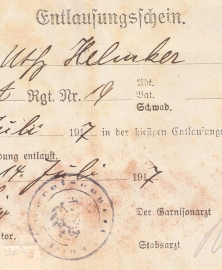 Entlausungsschein.
Utfz Helmker
Rgt. Nr. 9 Abt.
Bat.
Schwad.
Juli 1917 in der hiesigen Entlausungs
bung entlaust.
14. Juli 1917
Der Garnisonarzt
tor.
Stabsarzt